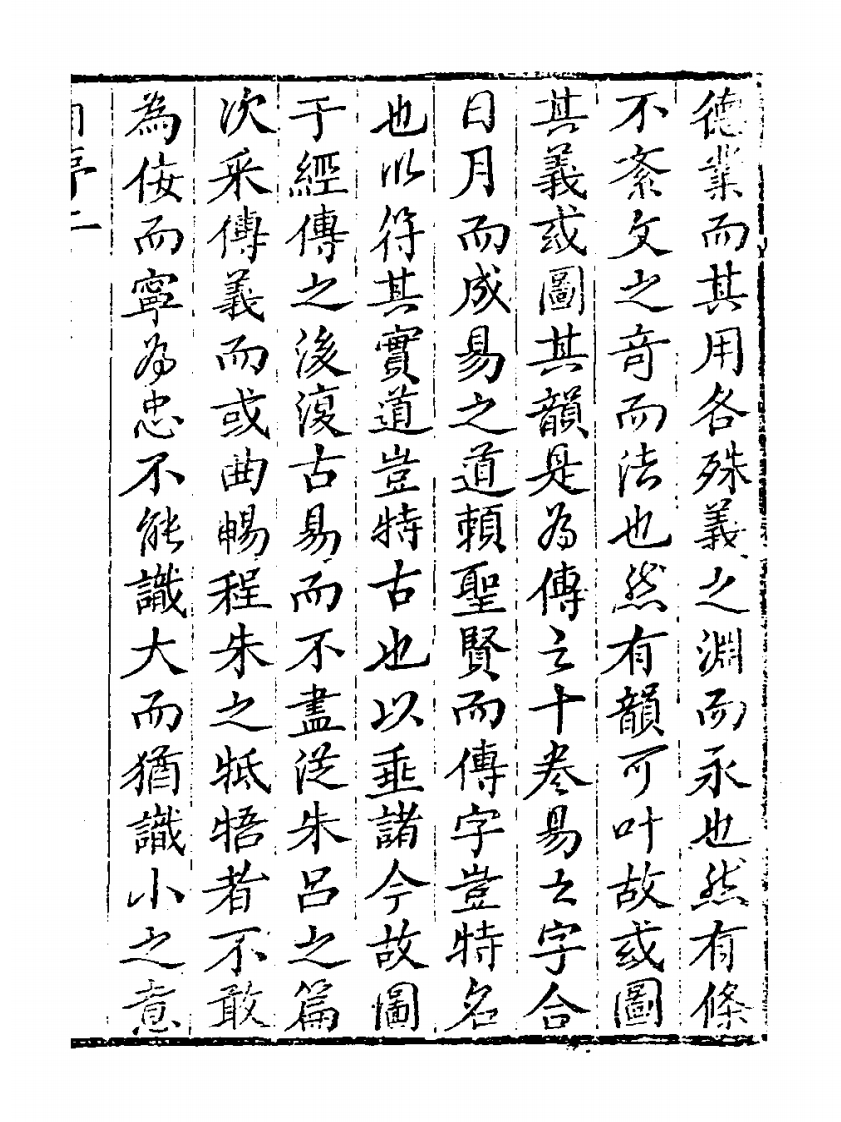 德業而其用各殊義之淵而永也然有條
不紊文之奇而法也然有韻可叶故或圖
其義或圖其韻是為傳之十卷易之字合
日月而成易之道賴聖賢而傳字豈特名
也以符其實道豈特古也以垂諸今故圖
于經傳之後復古易而不盡從朱呂之篇
次采傳義而或曲暢程朱之牴牾者不敢
為佞而寧為忠不能識大而猶識小之意